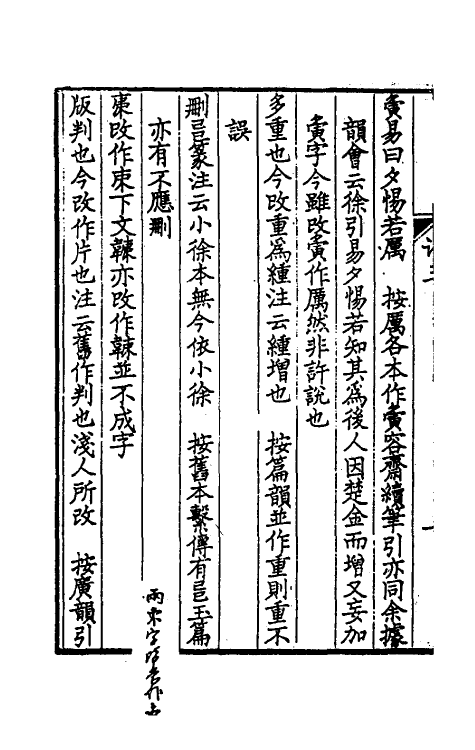 夤易曰夕惕若厲　按厲各本作夤容齋續筆引亦同余據
韻會云徐引易夕惕若知其爲後人因楚金而增又妄加
夤字今雖改夤作厲然非許說也
多重也今改重爲緟注云緟增也　按篇韻並作重則重不
誤
刪篆注云小徐本無今依小徐　按舊本繫傳有玉篇
亦有不應刪
改作東下文亦改作並不成字
兩東字皆作
版判也今改作片也注云舊作判也淺人所改　按廣韻引